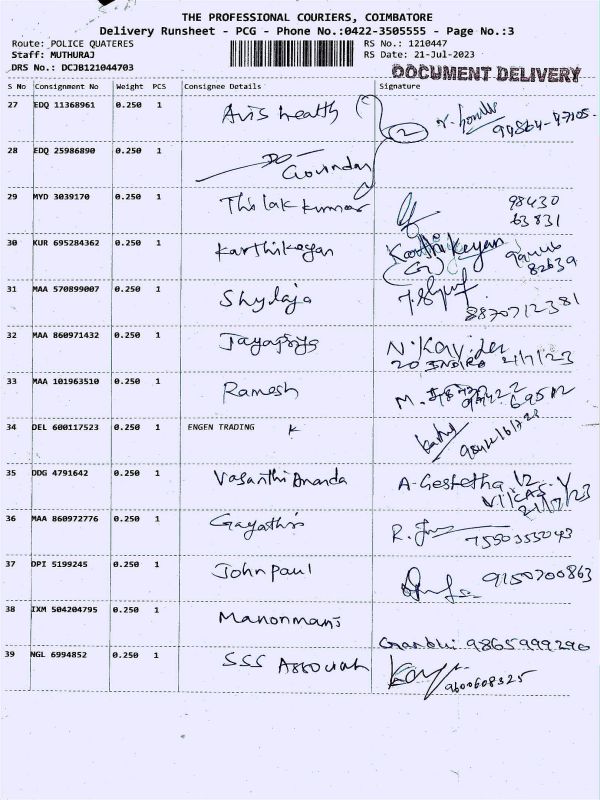 THE PROFESSIONAL COURIERS, COIMBATORE
Delivery Runsheet - PCG - Phone No.:0422-3505555 - Page No.:3
Route: POLICE QUATERES RS No.: 1210447
Staff: MUTHURAJ RS Date: 21-Jul-2023
DRS No.: DCJB121044703 DOCUMENT DELIVERY
S No Consignment No Weight PCS Consignee Details Signature
27 EDQ 11368961 0.250 1 Avis health 2
28 EDQ 25986890 0.250 1 Govindan
29 MYD 3039170 0.250 1 Thilak kumar 98430
63831
30 KUR 695284362 0.250 1 Karthikeyan Karthikeyan
82639
31 MAA 570899007 0.250 1 Shylaja 8870712381
32 MAA 860971432 0.250 1 Jayapriya N. Kavi
20 INDIRA 21/7/23
33 MAA 101963510 0.250 1 Ramesh M.
34 DEL 600117523 ENGEN TRADING K
35 DDG 4791642 0.250 1 Vasanthi Ananda A-Gestetha
21/7/23
36 MAA 860972776 0.250 1 Gayathri R. 7550355043
37 DPI 5199245 0.250 1 John paul 9150700863
38 IXM 504204795 0.250 1 Manonmani
Gandhi 9865999290
39 NGL 6994852 0.250 1 SSS Associats 9600608325